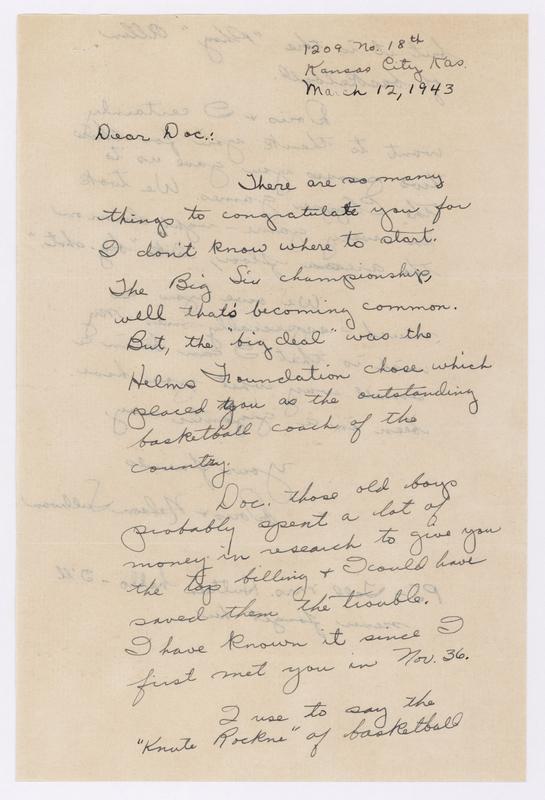 1209 No. 18th
Kansas City Kas.
March 12, 1943
Dear Doc.:
There are so many
things to congratulate you for
I don't know where to start.
The Big Six championship,
well that's becoming common.
But, the "big deal" was the
Helms Foundation chose which
placed you as the outstanding
basketball coach of the
country.
Doc. those old boys
probably spent a lot of
money in research to give you
the top billing + I could have
saved them the trouble.
I have known it since I
first met you in Nov. 36.
I use to say the
"Knute Rockne" of basketball